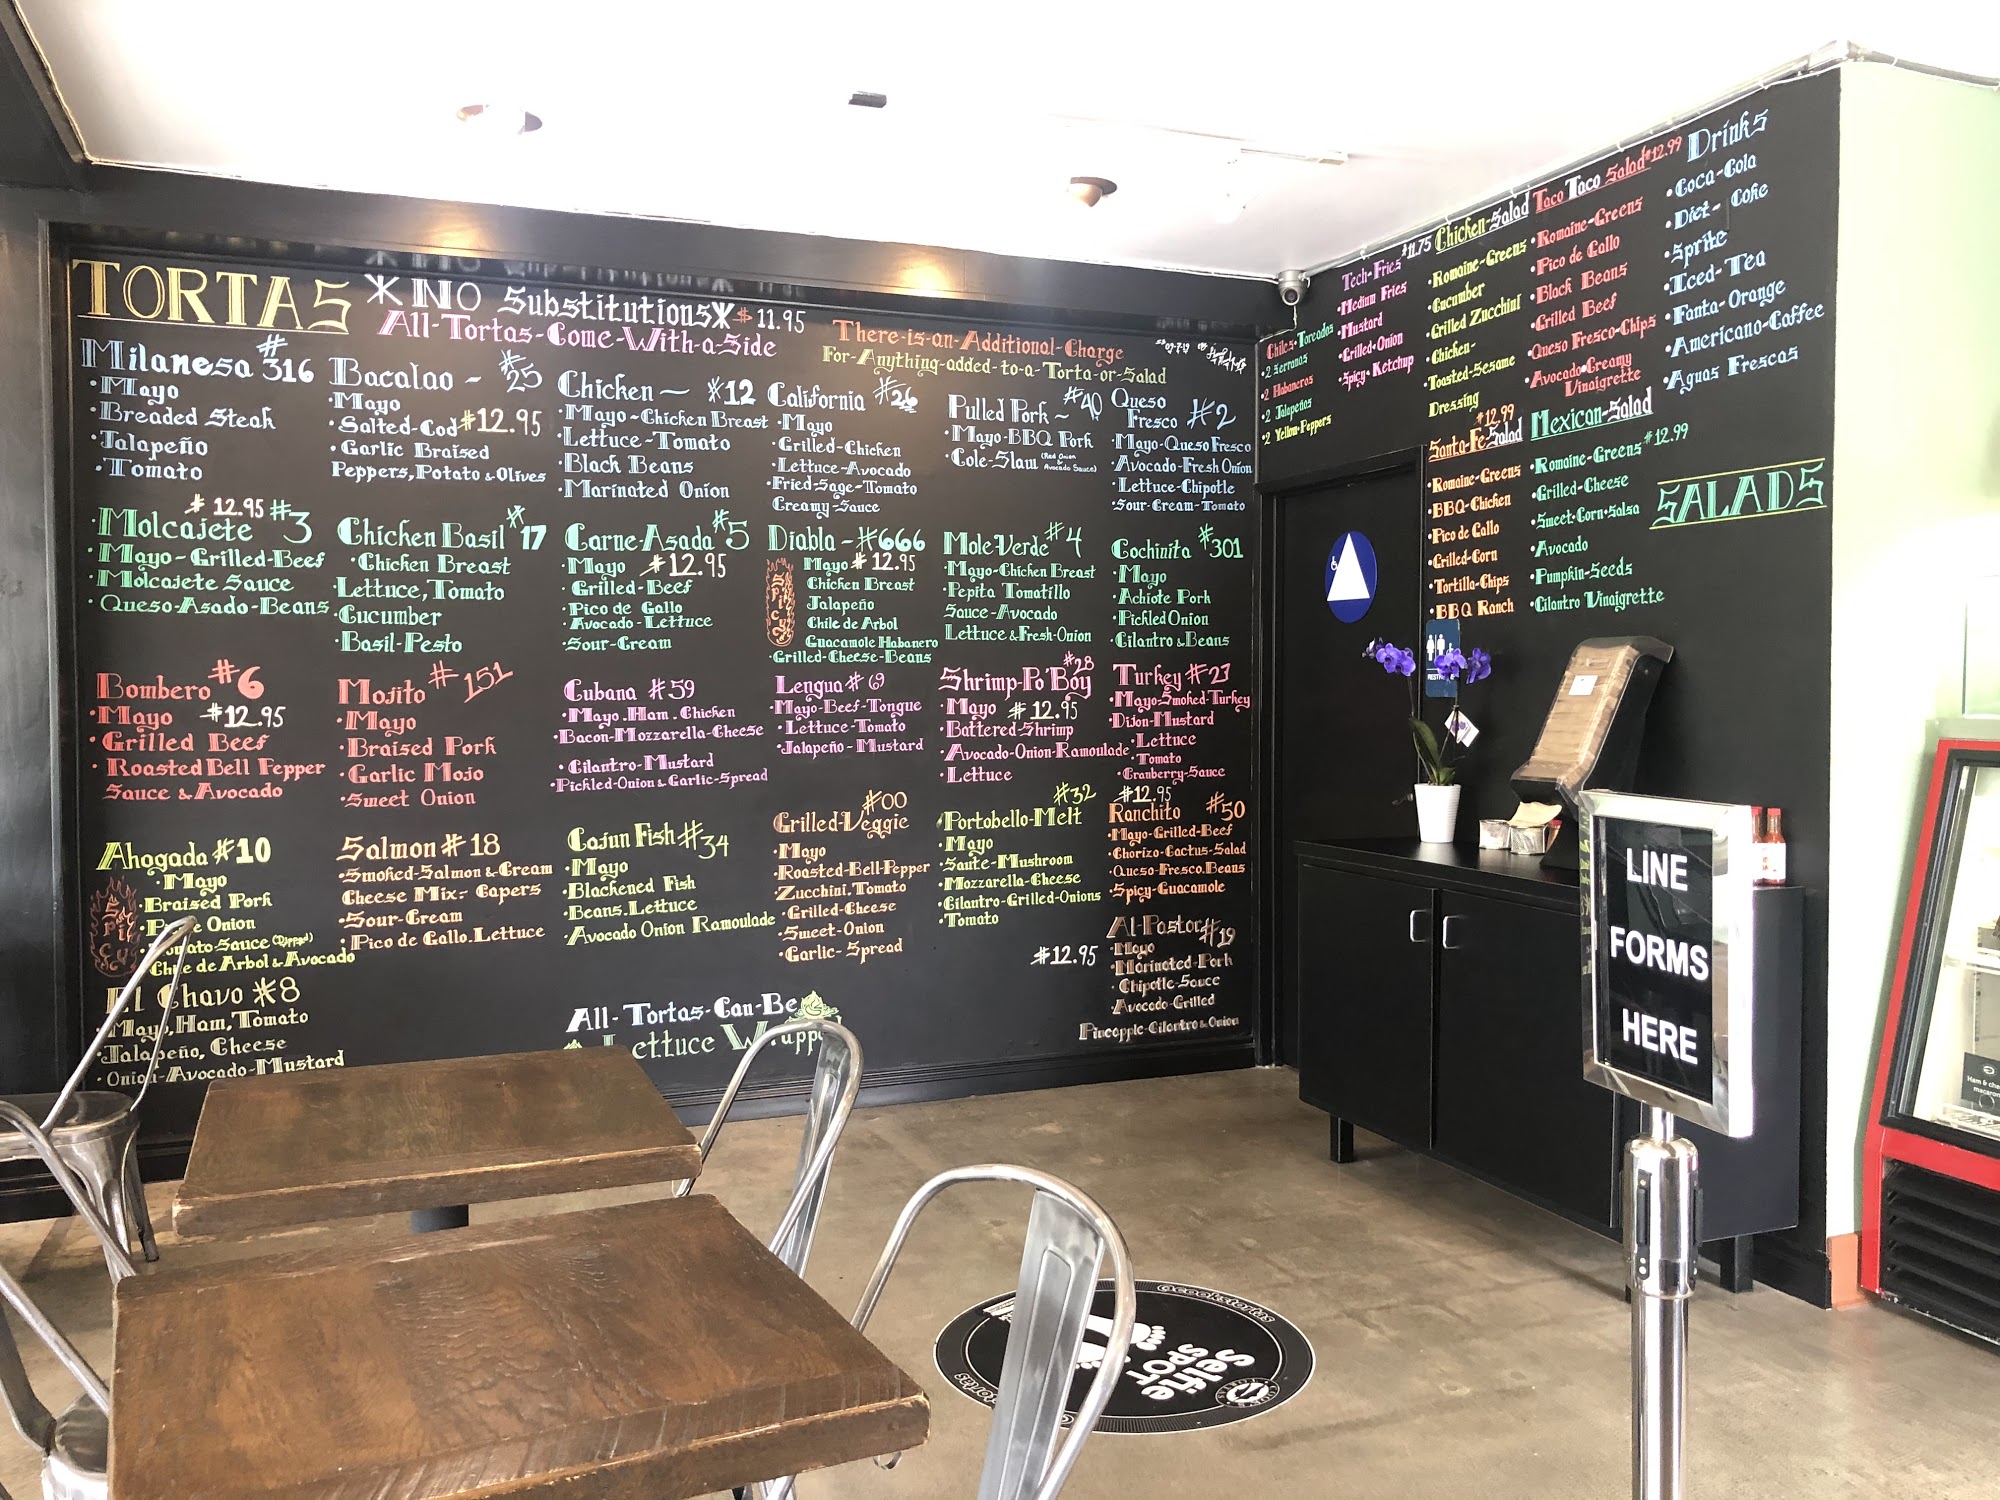 TORTAS
*NO Substitutions* $11.95
All-Tortas-Come-With-a-Side
There-is-an-Additional-Charge
For-Anything-added-to-a-Torta-or-Salad
Milanesa #316
•Mayo
•Breaded Steak
•Jalapeño
•Tomato
Bacalao - #25
•Mayo
•Salted-Cod $12.95
•Garlic Braised
Peppers, Potato & Olives
Chicken - #12
•Mayo-Chicken Breast
•Lettuce-Tomato
•Black Beans
•Marinated Onion
California #26
•Mayo
•Grilled-Chicken
•Lettuce-Avocado
•Fried-Sage-Tomato
Creamy-Sauce
Pulled Pork - #40
•Mayo-BBQ Pork
•Cole-Slaw (Red Onion & Avocado Sauce)
Queso
Fresco #2
•Mayo-Queso Fresco
•Avocado-Fresh Onion
•Lettuce-Chipotle
•Sour-Cream-Tomato
$12.95
•Molcajete #3
•Mayo-Grilled-Beef
•Molcajete Sauce
•Queso-Asado-Beans
Chicken Basil #17
•Chicken Breast
•Lettuce, Tomato
•Cucumber
•Basil-Pesto
Carne-Asada #5
•Mayo $12.95
•Grilled-Beef
•Pico de Gallo
•Avocado-Lettuce
•Sour-Cream
Diabla - #666
Spicy
Mayo $12.95
Chicken Breast
Jalapeño
Chile de Arbol
Guacamole Habanero
•Grilled-Cheese-Beans
Mole Verde #4
•Mayo-Chicken Breast
•Pepita Tomatillo
Sauce-Avocado
Lettuce & Fresh-Onion
Cochinita #301
•Mayo
•Achiote Pork
•Pickled Onion
•Cilantro & Beans
Bombero #6
•Mayo $12.95
•Grilled Beef
•Roasted Bell Pepper
Sauce & Avocado
Mojito #151
•Mayo
•Braised Pork
•Garlic Mojo
•Sweet Onion
Cubana #59
•Mayo.Ham.Chicken
•Bacon-Mozzarella-Cheese
•Cilantro-Mustard
•Pickled-Onion & Garlic-Spread
Lengua #69
•Mayo-Beef-Tongue
•Lettuce-Tomato
•Jalapeño-Mustard
Shrimp-Po'Boy #28
•Mayo $12.95
•Battered-Shrimp
•Avocado-Onion-Ramoulade
•Lettuce
Turkey #27
•Mayo-Smoked-Turkey
•Dijon-Mustard
•Lettuce
•Tomato
•Cranberry-Sauce
Ahogada #10
Spicy
•Mayo
•Braised Pork
Onion
Tomato-Sauce (Dipped)
Chile de Arbol & Avocado
Salmon #18
•Smoked-Salmon & Cream
Cheese Mix.- Capers
•Sour-Cream
•Pico de Gallo.Lettuce
Cajun Fish #34
•Mayo
•Blackened Fish
•Beans.Lettuce
•Avocado Onion Ramoulade
Grilled-Veggie #00
•Mayo
•Roasted-Bell-Pepper
Zucchini.Tomato
•Grilled-Cheese
•Sweet-Onion
•Garlic-Spread
Portobello-Melt #32
•Mayo
•Saute-Mushroom
•Mozzarella-Cheese
•Cilantro-Grilled-Onions
•Tomato
$12.95
Ranchito #50
•Mayo-Grilled-Beef
•Chorizo-Cactus-Salad
•Queso-Fresco.Beans
•Spicy-Guacamole
El Chavo #8
•Mayo, Ham, Tomato
•Jalapeño, Cheese
•Onion-Avocado-Mustard
All-Tortas-Can-Be
Lettuce Wrapped
$12.95
Al-Pastor #19
•Mayo
•Marinated-Pork
•Chipotle-Sauce
Avocado-Grilled
Pineapple-Cilantro & Onion
Chiles-Toreados
•2 Serranos
•2 Habaneros
•2 Jalapeños
•2 Yellow-Peppers
Tech-Fries $11.75
•Medium Fries
•Mustard
•Grilled-Onion
•Spicy-Ketchup
Chicken-Salad
•Romaine-Greens
•Cucumber
•Grilled Zucchini
•Chicken-
•Toasted-Sesame
Dressing
Taco Taco Salad $12.99
•Romaine-Greens
•Pico de Gallo
•Black Beans
•Grilled Beef
•Queso Fresco-Chips
•Avocado-Creamy
Vinaigrette
Drinks
•Coca-Cola
•Diet-Coke
•Sprite
•Iced-Tea
•Fanta-Orange
•Americano-Coffee
•Aguas Frescas
$12.99
Santa-Fe-Salad
•Romaine-Greens
•BBQ-Chicken
•Pico de Gallo
•Grilled-Corn
•Tortilla-Chips
•BBQ Ranch
Mexican-Salad
•Romaine-Greens $12.99
•Grilled-Cheese
•Sweet-Corn-Salsa
•Avocado
•Pumpkin-Seeds
•Cilantro Vinaigrette
SALADS
LINE
FORMS
HERE
Selfie
SPOT
@cookstortas